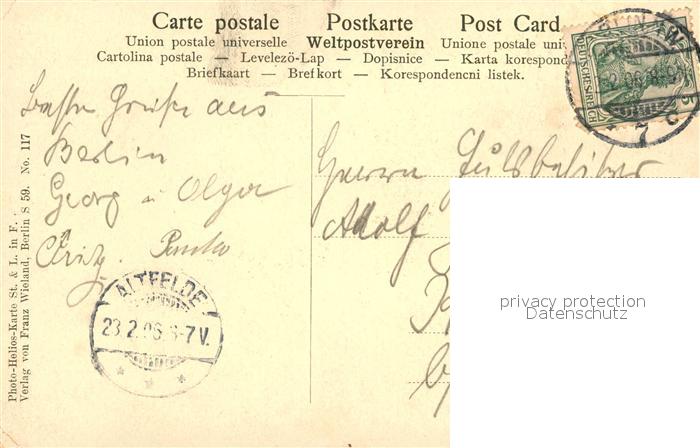 Carte postale Postkarte Post Card
Union postale universelle Weltpostverein Unione postale uni
Cartolina postale — Levelezö-Lap — Dopisnice — Karta korespond
Briefkaart — Brefkort — Korespondencni listek.
DEUTSCHES REICH
Beste Grüße aus
Berlin
Georg u Olga
Herrn Gutsbesitzer
Adolf
ALTFELDE
23.2.06. 6-7 V.
privacy protection
Datenschutz
Photo-Helios-Karte St. & L. in F.
Verlag von Franz Wieland, Berlin S 59. No. 117